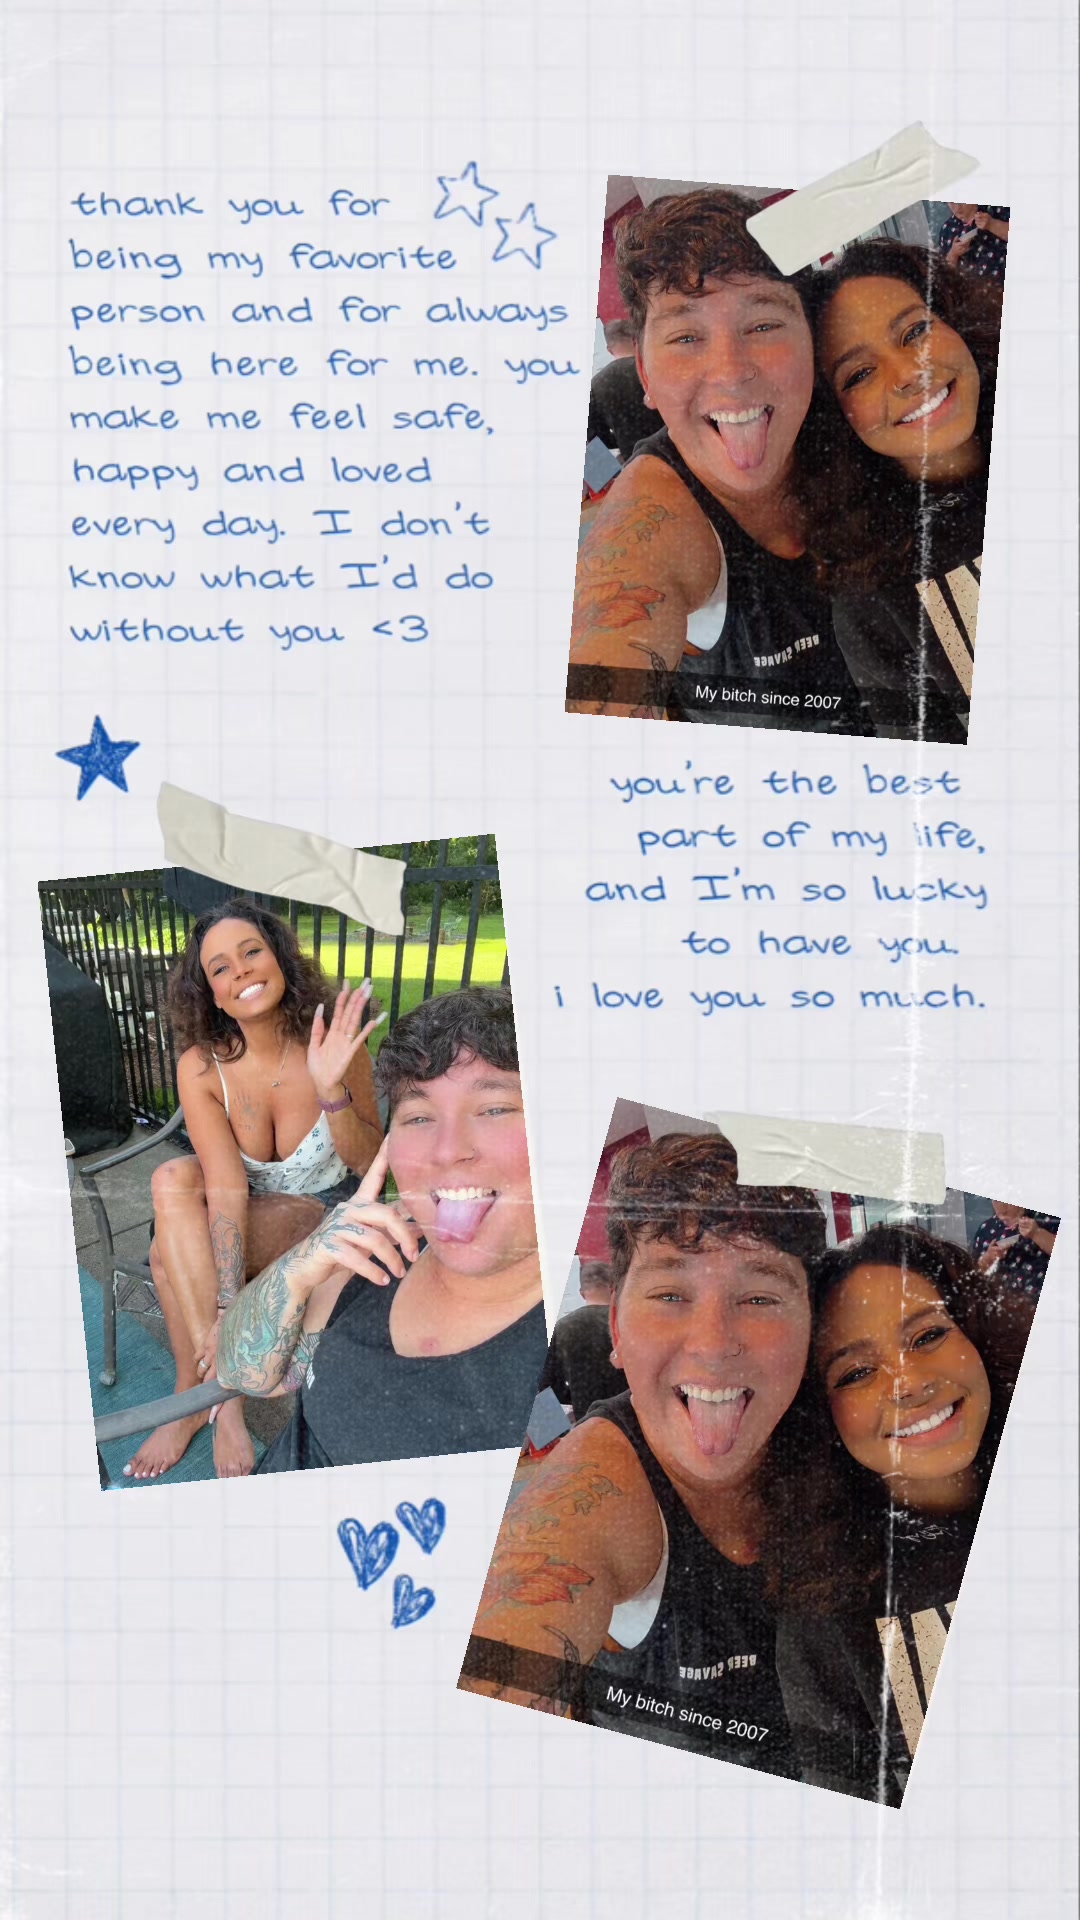 thank you for
being my favorite
person and for always
being here for me. you
make me feel safe,
happy and loved
every day. I don't
know what I'd do
without you <3
BEER SAVAGE
My bitch since 2007
you're the best
part of my life,
and I'm so lucky
to have you.
i love you so much.
BEER SAVAGE
My bitch since 2007